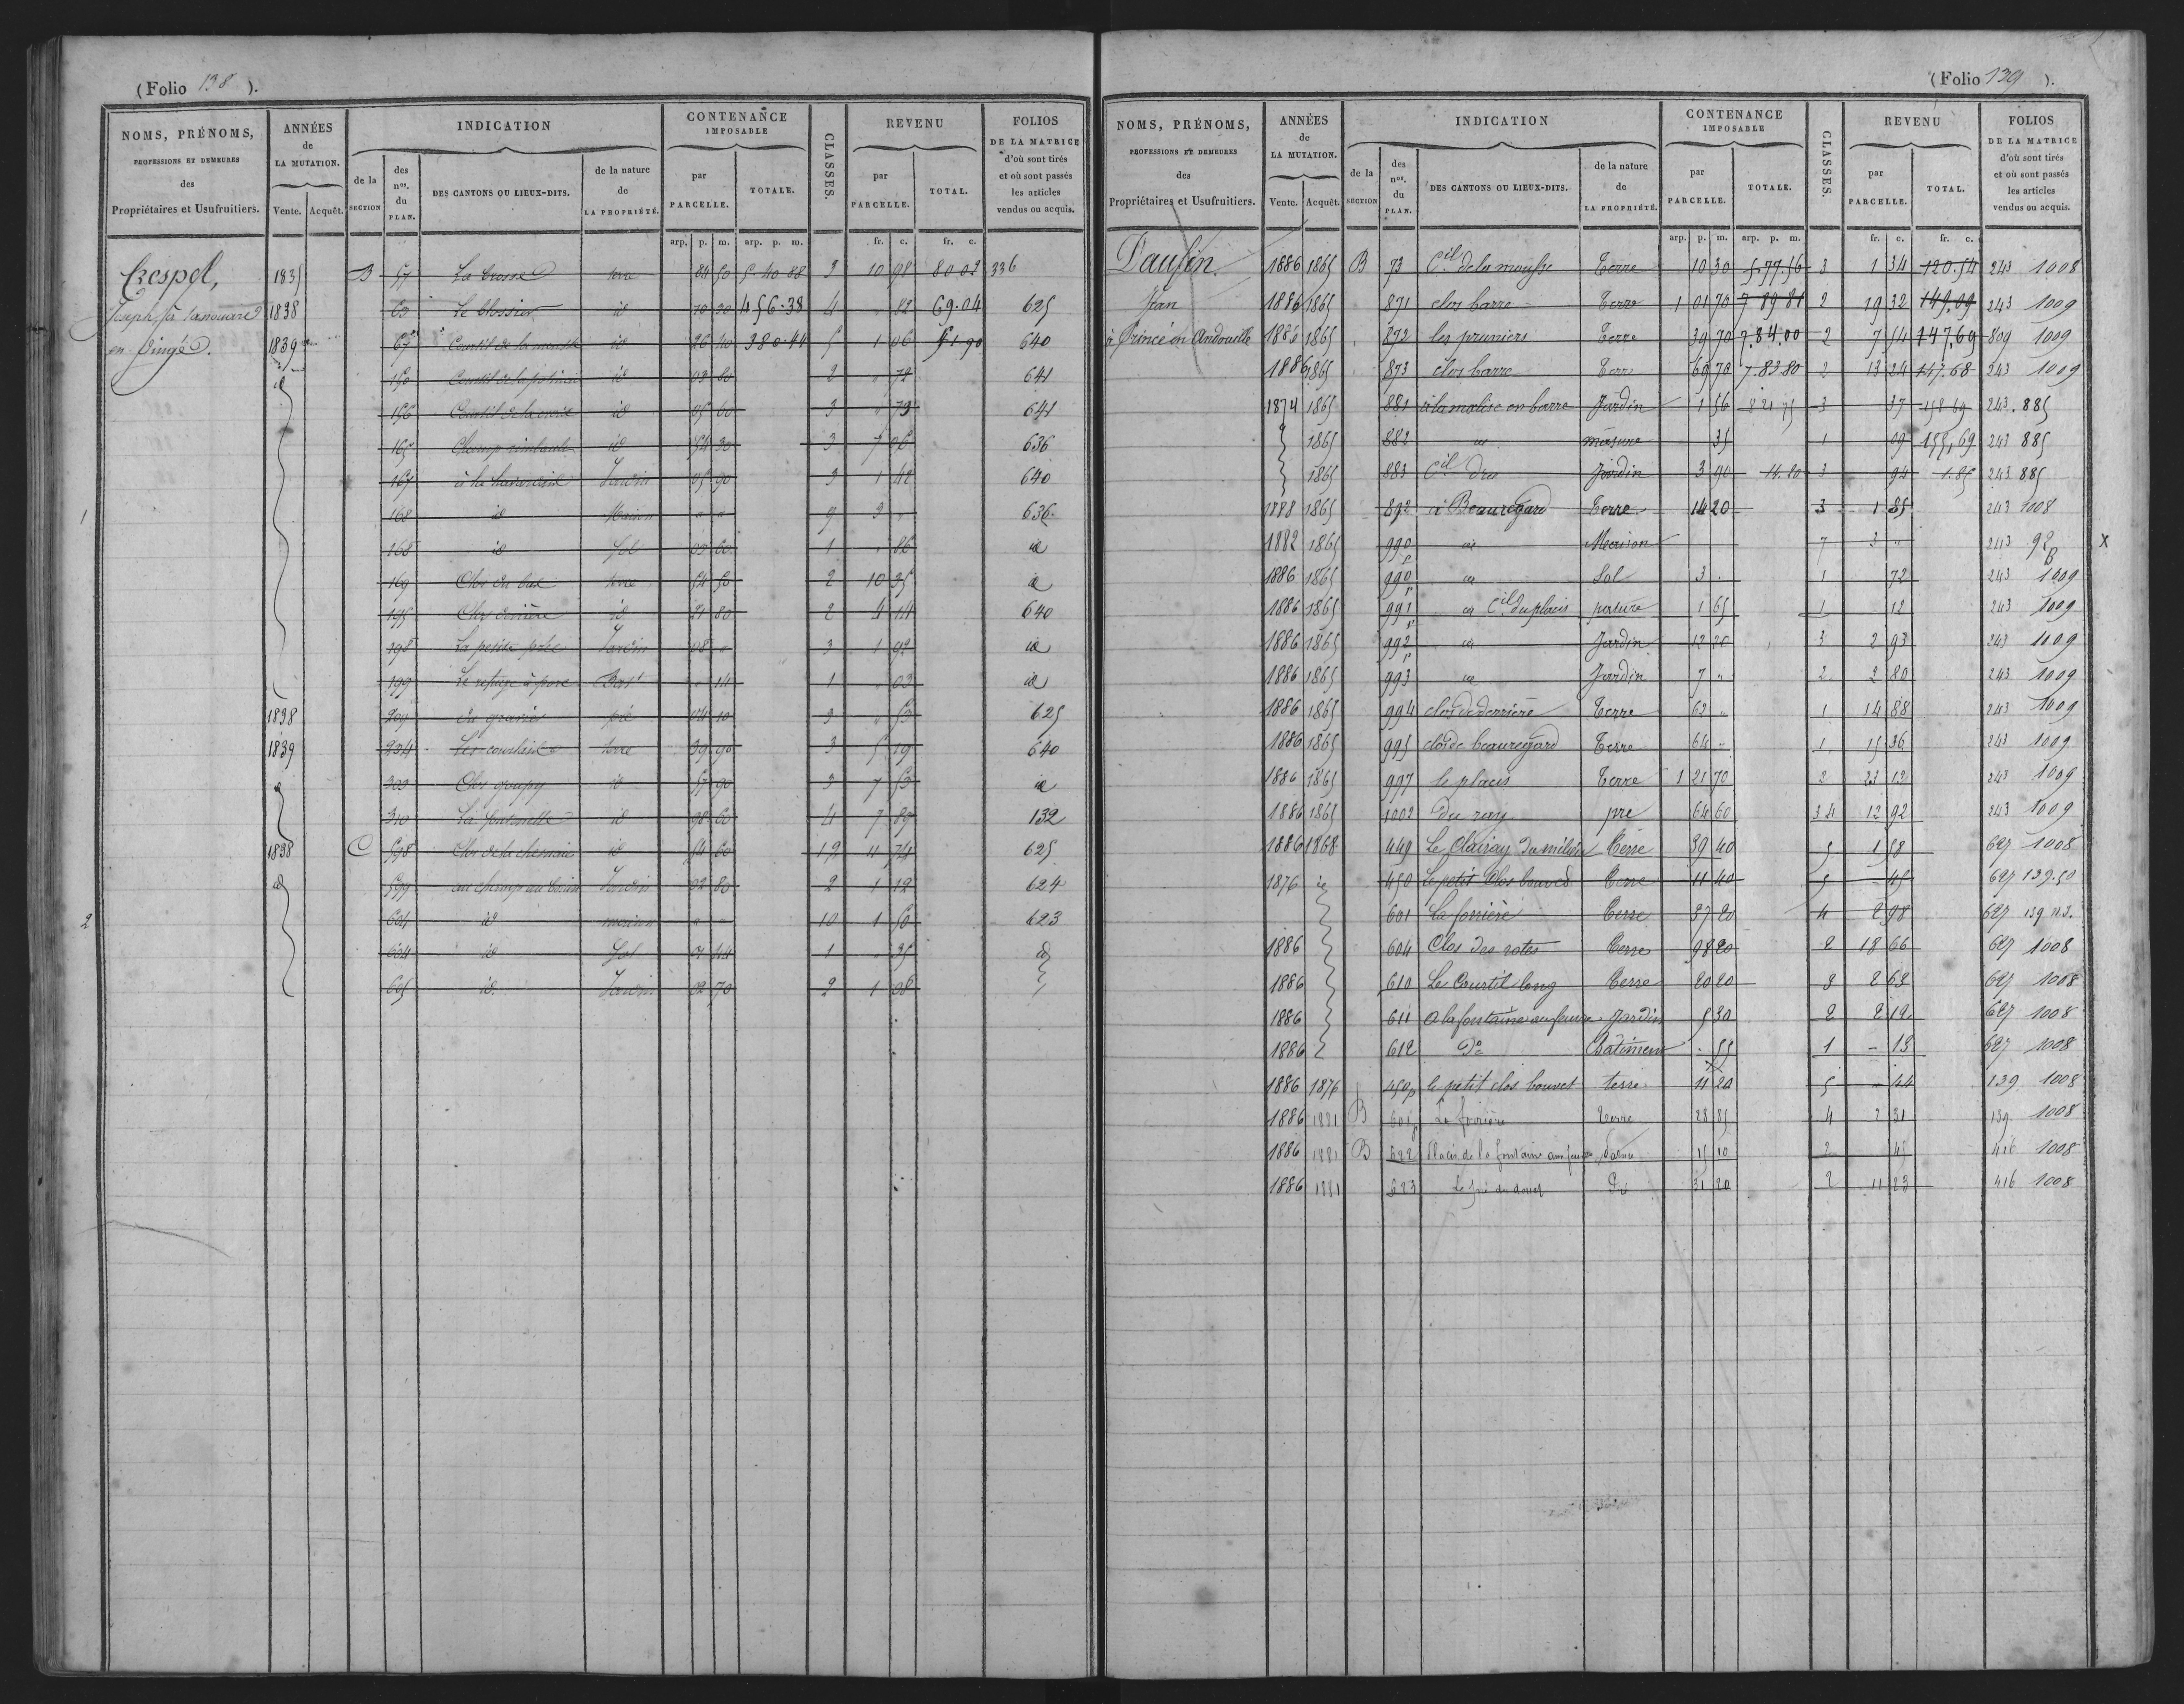 (Folio 138 ).
NOMS, PRÉNOMS,
PROFESSIONS ET DEMEURES
des
Propriétaires et Usufruitiers.
ANNÉES
de
LA MUTATION.
Vente. Acquêt.
INDICATION
de la
SECTION
des
nos.
du
PLAN.
DES CANTONS OU LIEUX-DITS.
de la nature
de
LA PROPRIÉTÉ.
CONTENANCE
IMPOSABLE
par
PARCELLE.
TOTALE.
CLASSES.
REVENU
par
PARCELLE.
TOTAL.
FOLIOS
DE LA MATRICE
d'où sont tirés
et où sont passés
les articles
vendus ou acquis.
arp. p. m. arp. p. m. fr. c. fr. c.
Crespel, 1835 B 57 La brosse terre 84 50 5.40 88 2 10 98 80 02 336
Joseph, 1838 60 id 10 30 456.38 4 " 82 69.04 625
en Dingé. 1839 67 Courtil de la id 26 40 380.44 5 1 06 51.90 640
id 150 id 03 80 2 " 72 641
156 id 05 60 3 " 73 641
165 Champ id 54 30 3 7 06 636
167 Jardin 05 90 3 1 42 640
1 168 id Maison " " 9 3 " 636
168 id Sol 03 60 1 " 86 id
169 Clos du bas terre 54 50 2 10 35 id
195 Clos derrière id 21 80 2 4 14 640
198 La petite Jardin 08 " 3 1 92 id
199 " 14 1 " 03 id
1838 209 pré 04 10 3 " 53 625
1839 234 Les courtils terre 39 90 3 5 19 640
id 303 Clos goupy id 57 90 3 7 53 id
310 id 98 60 4 7 89 132
1838 C 598 Clos de la chesnaie id 54 60 12 11 74 625
id 599 au champ Jardin 02 80 2 1 12 624
2 604 id maison " " 10 1 50 623
604 id Sol 01 44 1 " 35 id
605 id. Jardin 02 70 2 1 08
(Folio 139 ).
NOMS, PRÉNOMS,
PROFESSIONS ET DEMEURES
des
Propriétaires et Usufruitiers.
ANNÉES
de
LA MUTATION.
Vente. Acquêt.
INDICATION
de la
SECTION
des
nos.
du
PLAN.
DES CANTONS OU LIEUX-DITS.
de la nature
de
LA PROPRIÉTÉ.
CONTENANCE
IMPOSABLE
par
PARCELLE.
TOTALE.
CLASSES.
REVENU
par
PARCELLE.
TOTAL.
FOLIOS
DE LA MATRICE
d'où sont tirés
et où sont passés
les articles
vendus ou acquis.
arp. p. m. arp. p. m. fr. c. fr. c.
Daufin. 1886 1865 B 73 Cil de la mousse Terre 10 30 5.77.56 3 1 34 120.54 243 1008
Jean 1886 1865 871 clos barre Terre 1 01 70 7 89 81 2 19 32 149.09 243 1009
à Princé en Andouillé 1886 1865 872 les pruniers Terre 39 70 7.84.00 2 7 54 147,69 809 1009
1886 1865 873 clos barre Terre 69 70 7 83 80 2 13 24 147.68 243 1009
1874 1865 881 à la malise en barre Jardin 1 56 8 21 75 3 37 158 69 243.885
1865 882 id masure 35 1 09 155,69 243 885
1865 883 Cil dru Jardin 3 90 14.20 3 94 1.85 243 885
1888 1865 892 à Beauregard Terre 14 20 3 1 85 243 1008
1882 1865 990 p id Maison 7 3 " 243 92 B X
1886 1865 990 p id Sol 3 . 1 72 243 1009
1886 1865 991 p id Cil du placis pature 1 65 1 12 243 1009
1886 1865 992 p id Jardin 12 20 3 2 93 243 1009
1886 1865 993 id Jardin 7 " 2 2 80 243 1009
1886 1865 994 clos de derrière Terre 62 " 1 14 88 243 1009
1886 1865 995 clos de beauregard Terre 64 " 1 15 36 243 1009
1886 1865 997 le placis Terre 1 21 70 2 23 12 243 1009
1886 1865 1002 Du ray pre 64 60 3 4 12 92 243 1009
1886 1868 449 Le Clairay du milieu Terre 39 40 5 1 58 627 1008
1876 id 450 Le petit Clos bouvet Terre 11 40 5 - 45 627 139.50
601 La forrière Terre 37 20 4 2 98 627 139
1886 604 Clos des rotes Terre 98 20 2 18 66 627 1008
1886 610 Le Courtil long Terre 20 20 3 2 63 627 1008
1886 611 A la fontaine au feuvre Jardin 5 30 2 2 12 627 1008
1886 612 Do Batiment - 55 1 - 13 627 1008
1886 1876 450p le petit clos bouvet terre 11 20 5 " 44 139 1008
1886 1881 B 601p La forrière Terre 28 85 4 2 31 139 1008
1886 1881 B 622 Placis de la fontaine aux Pature 15 10 2 45 416 1008
1886 1881 623 Le pré du douet Pré 31 20 2 11 23 416 1008